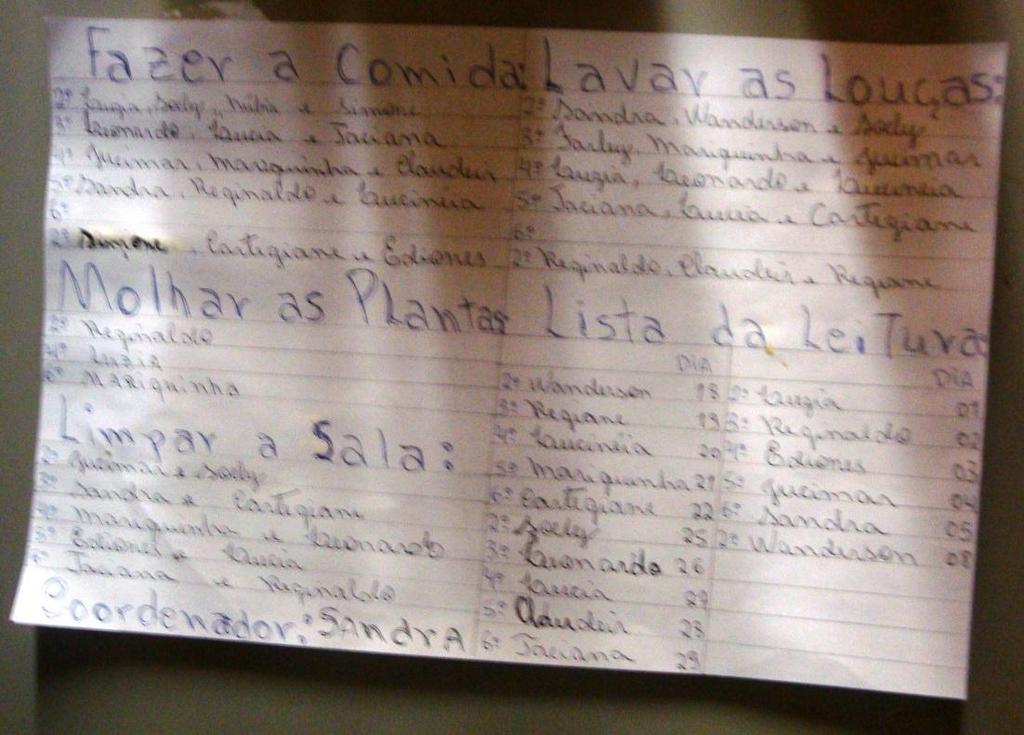 Fazer a Comida:
2º Luzia, Soely, Núbia e Simone
3º Leonardo, Laucia e Taciana
4º Jucimar, Mariquinha e Claudeir
5º Sandra, Reginaldo e Laucineia
6º
2º Simone, Cartegiane e Ediones
Molhar as Plantas
2º Reginaldo
4º Luzia
6º Mariquinha
Limpar a Sala:
2º Jucimar e Soely
3º Sandra e Cartegiane
4º Mariquinha e Leonardo
5º Ediones e Laucia
6º Taciana e Reginaldo
Coordenador: SandrA
Lavar as Louças:
2º Sandra, Wanderson e Soely
3º Mariquinha e Jucimar
4º Luzia, Leonardo e Laucineia
5º Taciana, Laucia e Cartegiane
6º
2º Reginaldo, Claudeir e Regiane
Lista da LeiTura:
DIA
2º Wanderson 18
3º Regiane 19
4º Laucineia 20
5º Mariquinha 21
6º Cartegiane 22
2º Soely 25
3º Leonardo 26
4º Laucia
5º Claudeir 28
6º Taciana 29
DIA
2º Luzia 01
3º Reginaldo 02
4º Ediones 03
5º Jucimar 04
6º Sandra 05
2º Wanderson 08